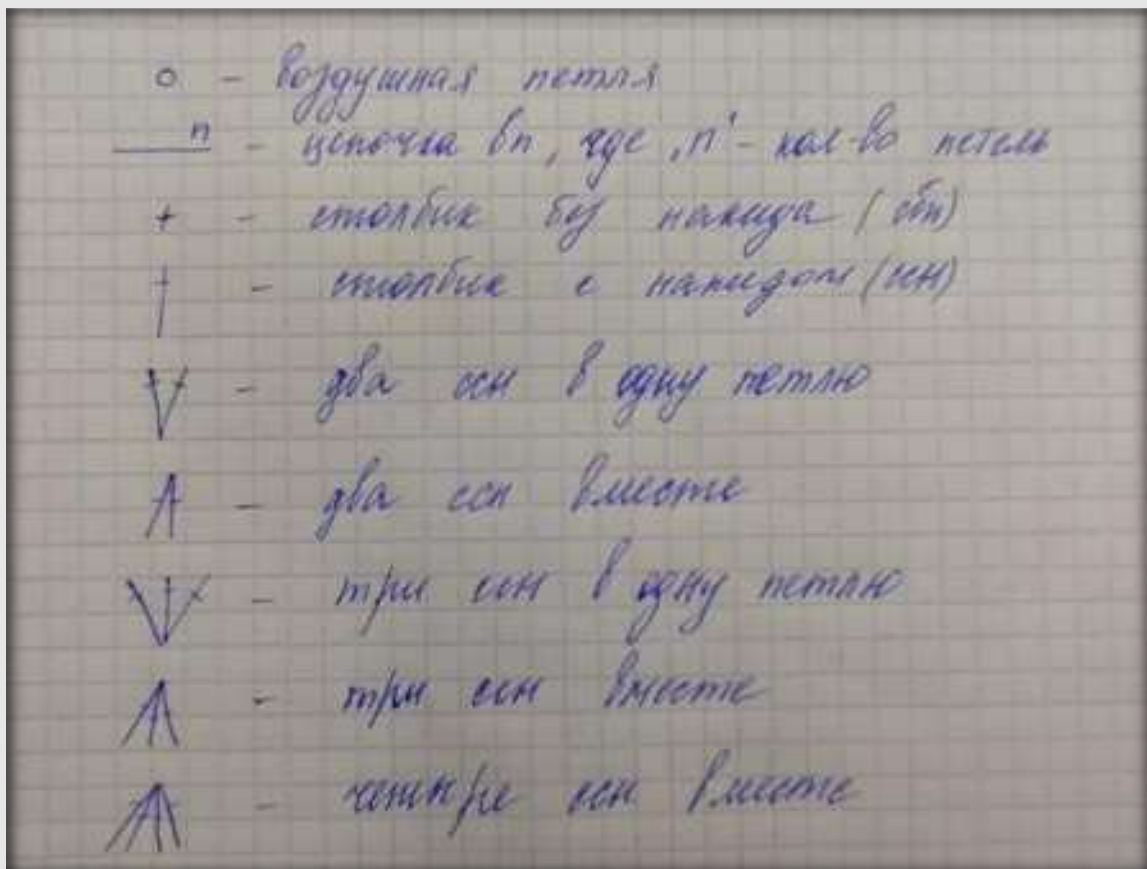 o - воздушная петля
n - цепочка вп, где "n" - кол-во петель
+ - столбик без накида (сбн)
† - столбик с накидом (ссн)
- два ссн в одну петлю
- два ссн вместе
- три ссн в одну петлю
- три ссн вместе
- четыре ссн вместе